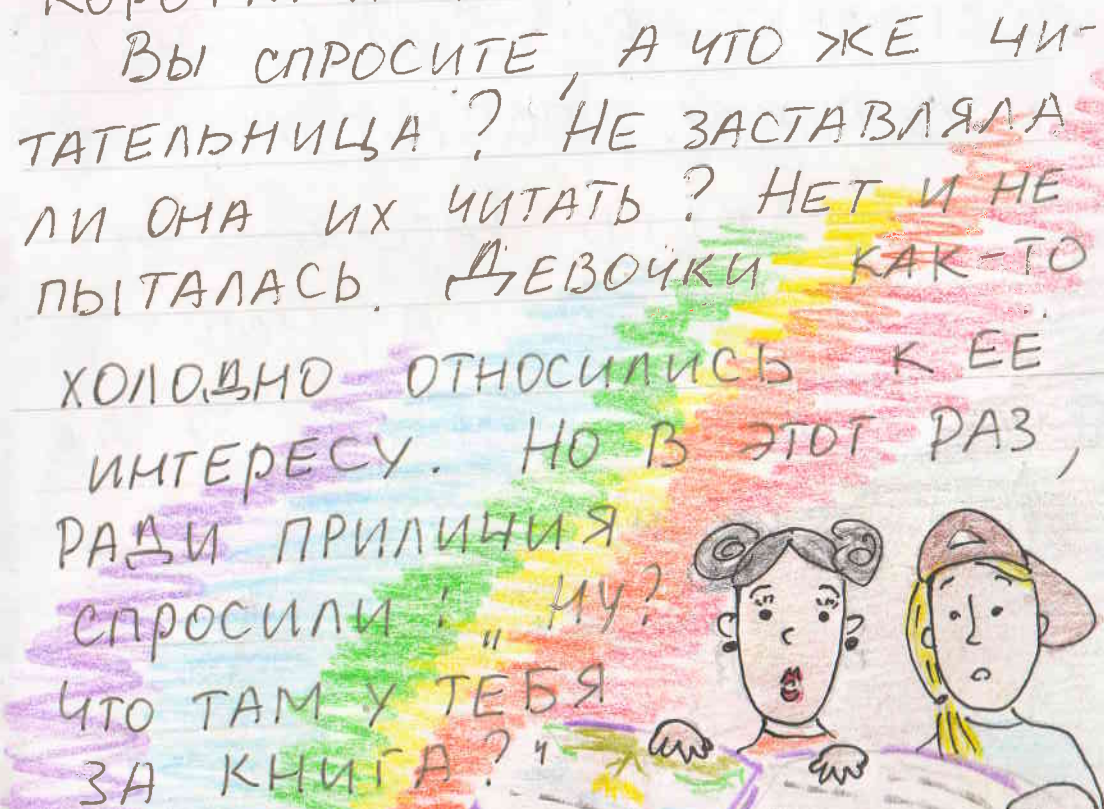 ВЫ СПРОСИТЕ, А ЧТО ЖЕ ЧИ-
ТАТЕЛЬНИЦА? НЕ ЗАСТАВЛЯЛА
ЛИ ОНА ИХ ЧИТАТЬ? НЕТ И НЕ
ПЫТАЛАСЬ. ДЕВОЧКИ КАК-ТО
ХОЛОДНО ОТНОСИЛИСЬ К ЕЕ
ИНТЕРЕСУ. НО В ЭТОТ РАЗ,
РАДИ ПРИЛИЧИЯ
СПРОСИЛИ: „НУ?
ЧТО ТАМ У ТЕБЯ
ЗА КНИГА?"